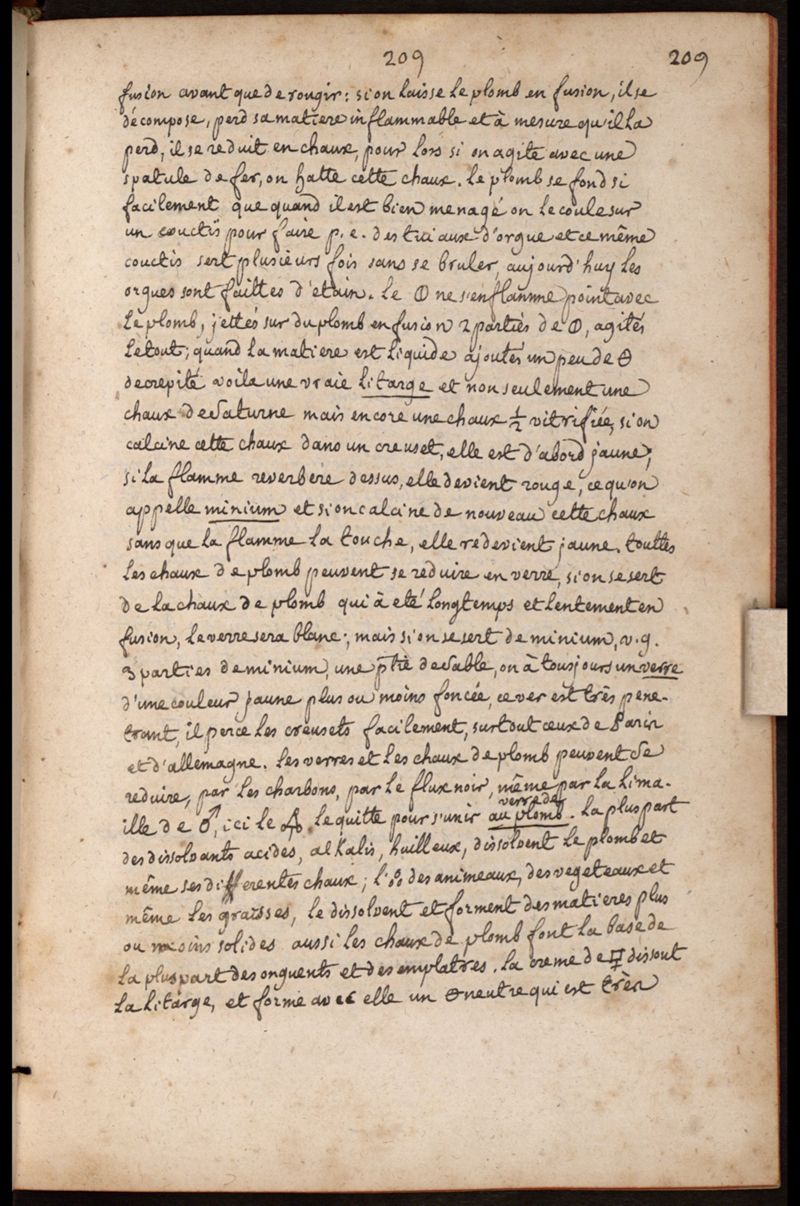 209 209
fusion avant que de rougir: si on laisse le plomb en fusion, il se
décompose, perd sa matiere inflammable et à mesure qu'il la
perd, il se reduit en chaux, pour lors si on agite avec une
spatule de fer, on hatte cette chaux. le plomb se fond si
facilement que quand il est bien menagé on le coule sur
un coutis pour faire p. e. des tuiaux d'orgue et ce même
couctis sert plusieurs fois sans se bruler, aujourd'huy les
orgues sont faittes d'étain. le 🜕 ne s'enflamme point avec
le plomb, jettés sur du plomb en fusion 2 parties de 🜕, agités
le tout; quand la matiere est liquide ajoutés un peu de 🜔
decrepité voila une vraie litarge et non seulement une
chaux de saturne mais encore une chaux ½ vitrifiée, si on
calcine cette chaux dans un creuset, elle est d'abord jaune;
si la flamme reverbere dessus, elle devient rouge, ce qu'on
appelle minium et si on calcine de nouveau cette chaux
sans que la flamme la touche, elle redevient jaune. touttes
les chaux de plomb peuvent se reduire en verre, si on se sert
de la chaux de plomb qui à eté longtemps et lentement en
fusion, le verre sera blanc; mais si on se sert de minium, v.g.
3 parties de minium, une ptie de sable, on à tousjours un verre
d'une couleur jaune plus ou moins foncée, ce ver est três pene-
trant, il perce les creusets facilement, surtout ceux de Paris
et d'allemagne. les verres et les chaux de plomb peuvent se
reduire, par les charbons, par le flux noir, même par la lima-
ille de ♂, ici le 🜍 le quitte pour s'unir au verre de plomb. la plus part
des dissolvants acides, alkalis, huilleux, dissolvent le plomb et
même ses differentes chaux; l' des animeaux, des vegeteaux et
même les graisses, le dissolvent et forment des matieres plus
ou moins solides aussi les chaux de plomb font la base de
la pluspart des onguents et des emplatres. la creme de 🜿 dissout
la litarge, et forme avec elle un 🜔 neutre qui est três